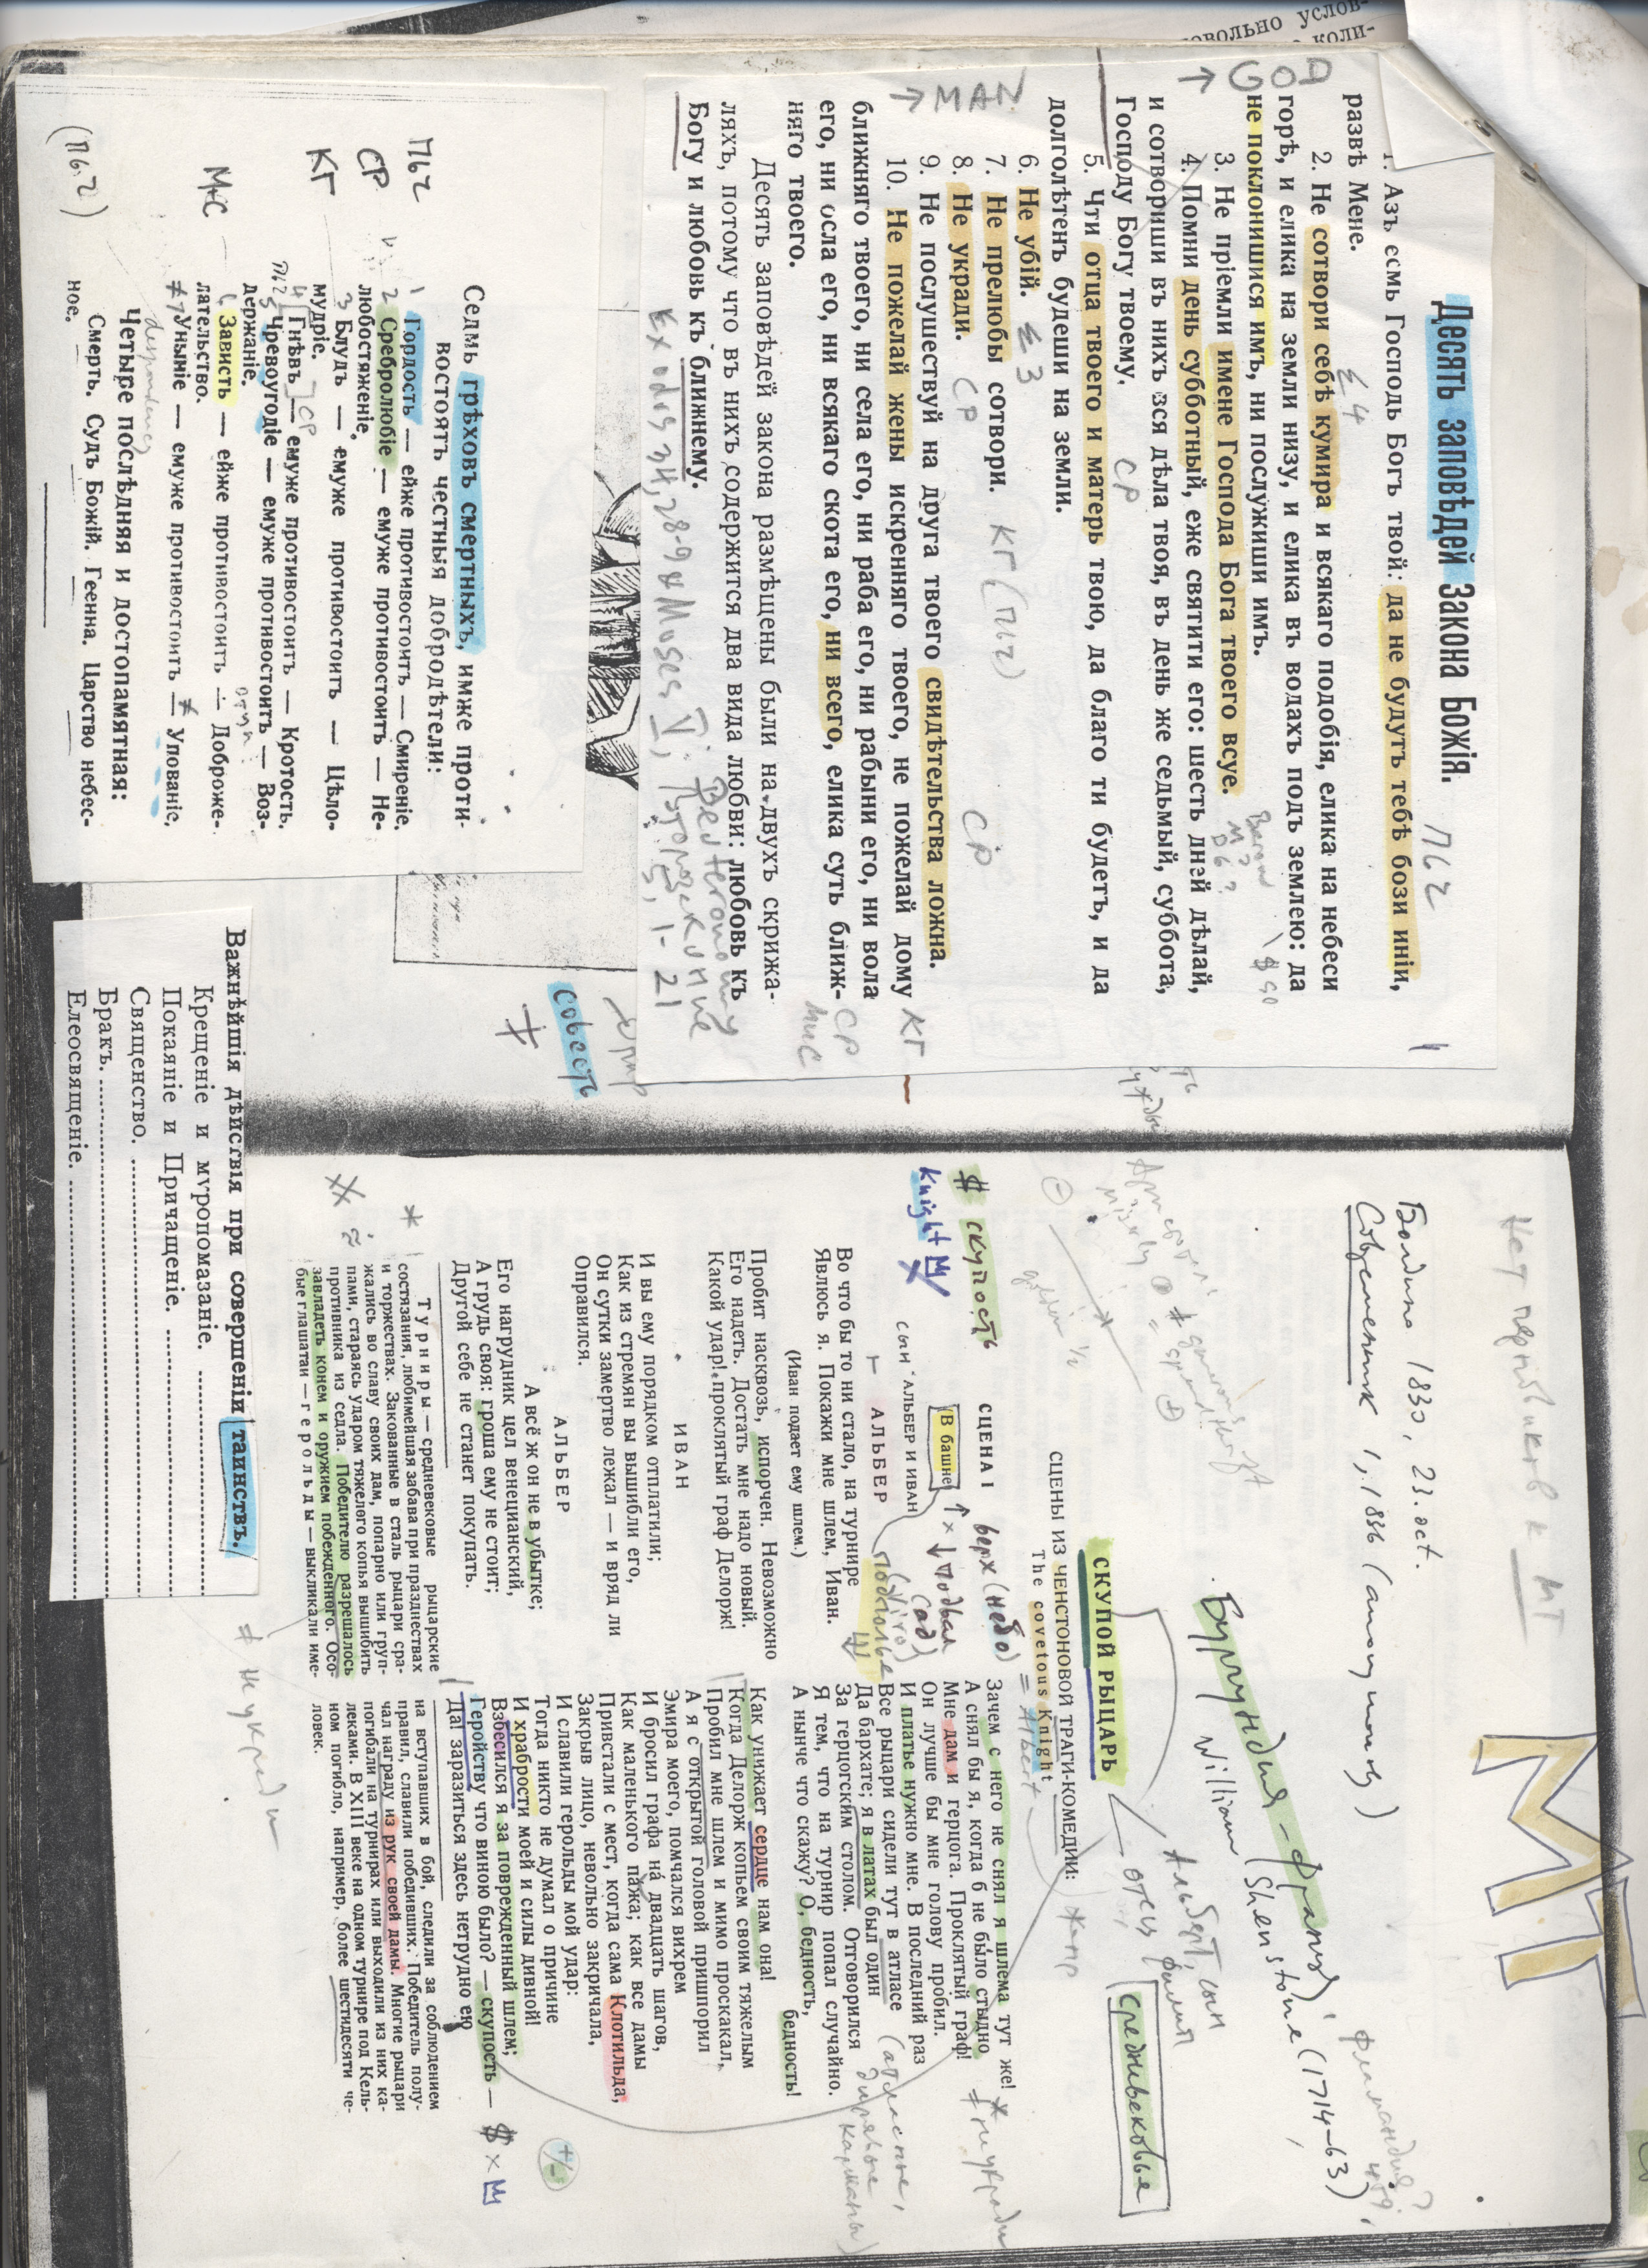 овольно услов-
коли-
Десять заповѣдей Закона Божія.
ПЬЧ
1. Азъ есмь Господь Богъ твой: да не будутъ тебѣ бози иніи,
развѣ Мене.
→ GOD
2. Не сотвори себѣ кумира и всякаго подобія, елика на небеси
горѣ, и елика на земли низу, и елика въ водахъ подъ землею: да
не поклонишися имъ, ни послужиши имъ.
3. Не пріемли имене Господа Бога твоего всуе.
4. Помни день субботный, еже святити его: шесть дней дѣлай,
и сотвориши въ нихъ вся дѣла твоя, въ день же седьмый, суббота,
Господу Богу твоему.
СР
5. Чти отца твоего и матерь твою, да благо ти будетъ, и да
долголѣтенъ будеши на земли.
→ MAN
6. Не убій.
7. Не прелюбы сотвори. КГ (ПЬЧ)
8. Не укради. СР
9. Не послушествуй на друга твоего свидѣтельства ложна.
СР
10. Не пожелай жены искренняго твоего, не пожелай дому КГ
ближняго твоего, ни села его, ни раба его, ни рабыни его, ни вола
его, ни осла его, ни всякаго скота его, ни всего, елика суть ближ- СР
няго твоего. МиС
Десять заповѣдей закона размѣщены были на двухъ скрижа-
ляхъ, потому что въ нихъ содержится два вида любви: любовь къ
Богу и любовь къ ближнему.
Exodus 34,28-9 & Moses V: Deuteronomy
5, 1-21
совесть
Седмь грѣховъ смертныхъ, имже проти-
востоятъ честныя добродѣтели:
ПЬЧ
1 Гордость — ейже противостоитъ — Смиреніе.
СР
2 Сребролюбіе — емуже противостоитъ — Не-
любостяженіе.
КГ
3 Блудъ — емуже противостоитъ — Цѣло-
мудріе.
4 Гнѣвъ — емуже противостоитъ — Кротость.
СР
5 Чревоугодіе — емуже противостоитъ — Воз-
держаніе.
МиС
6 Зависть — ейже противостоитъ — Доброже-
лательство.
7 Уныніе — емуже противостоитъ — Упованіе.
despondency
(ПЬЧ)
Четыре послѣдняя и достопамятная:
Смерть. Судъ Божій. Геенна. Царство небес-
ное.
Важнѣйшія дѣйствія при совершеніи таинствъ.
Крещеніе и мѵропомазаніе.
Покаяніе и Причащеніе.
Священство.
Бракъ.
Елеосвященіе.
МТ
Нет черновиков к МТ
Болдино 1830, 23. oct.
Современник 1, 1836 (anonymously)
Бургундия - Франция,
William Shenstone (1714-63)
Альберт, сын
отец
средневековье
СКУПОЙ РЫЦАРЬ
СЦЕНЫ ИЗ ЧЕНСТОНОВОЙ ТРАГИ-КОМЕДИИ:
The covetous Knight
= Albert
$ скупость
Knight
СЦЕНА I
верх (небо)
В башне
↑ × ↓ подвал
(ад)
сын АЛЬБЕР И ИВАН
подполье
АЛЬБЕР
Во что бы то ни стало, на турнире
Явлюсь я. Покажи мне шлем, Иван.
(Иван подает ему шлем.)
Пробит насквозь, испорчен. Невозможно
Его надеть. Достать мне надо новый.
Какой удар! проклятый граф Делорж!
ИВАН
И вы ему порядком отплатили;
Как из стремян вы вышибли его,
Он сутки замертво лежал — и вряд ли
Оправился.
АЛЬБЕР
А всё ж он не в убытке;
Его нагрудник цел венецианский,
А грудь своя: гроша ему не стоит;
Другой себе не станет покупать.
Турниры — средневековые рыцарские
состязания, любимейшая забава при празднествах
и торжествах. Закованные в сталь рыцари сра-
жались во славу своих дам, попарно или груп-
пами, стараясь ударом тяжелого копья вышибить
противника из седла. Победителю разрешалось
завладеть конем и оружием побежденного. Осо-
бые глашатаи — герольды — выкликали име-
≠ не укради
Зачем с него не снял я шлема тут же!
А снял бы я, когда б не было стыдно
Мне дам и герцога. Проклятый граф!
Он лучше бы мне голову пробил.
И платье нужно мне. В последний раз
Все рыцари сидели тут в атласе
Да бархате; я в латах был один
За герцогским столом. Отговорился
Я тем, что на турнир попал случайно.
А нынче что скажу? О, бедность, бедность!
Как унижает сердце нам она!
Когда Делорж копьем своим тяжелым
Пробил мне шлем и мимо проскакал,
А я с открытой головой пришпорил
Эмира моего, помчался вихрем
И бросил графа на двадцать шагов,
Как маленького пажа; как все дамы
Привстали с мест, когда сама Клотильда,
Закрыв лицо, невольно закричала,
И славили герольды мой удар:
Тогда никто не думал о причине
И храбрости моей и силы дивной!
Взбесился я за поврежденный шлем;
Геройству что виною было? — скупость —
Да! заразиться здесь нетрудно ею
на вступавших в бой, следили за соблюдением
правил, славили победивших. Победитель полу-
чал награду из рук своей дамы. Многие рыцари
погибали на турнирах или выходили из них ка-
леками. В XIII веке на одном турнире под Кель-
ном погибло, например, более шестидесяти че-
ловек.
* ≠ не укради
+/-